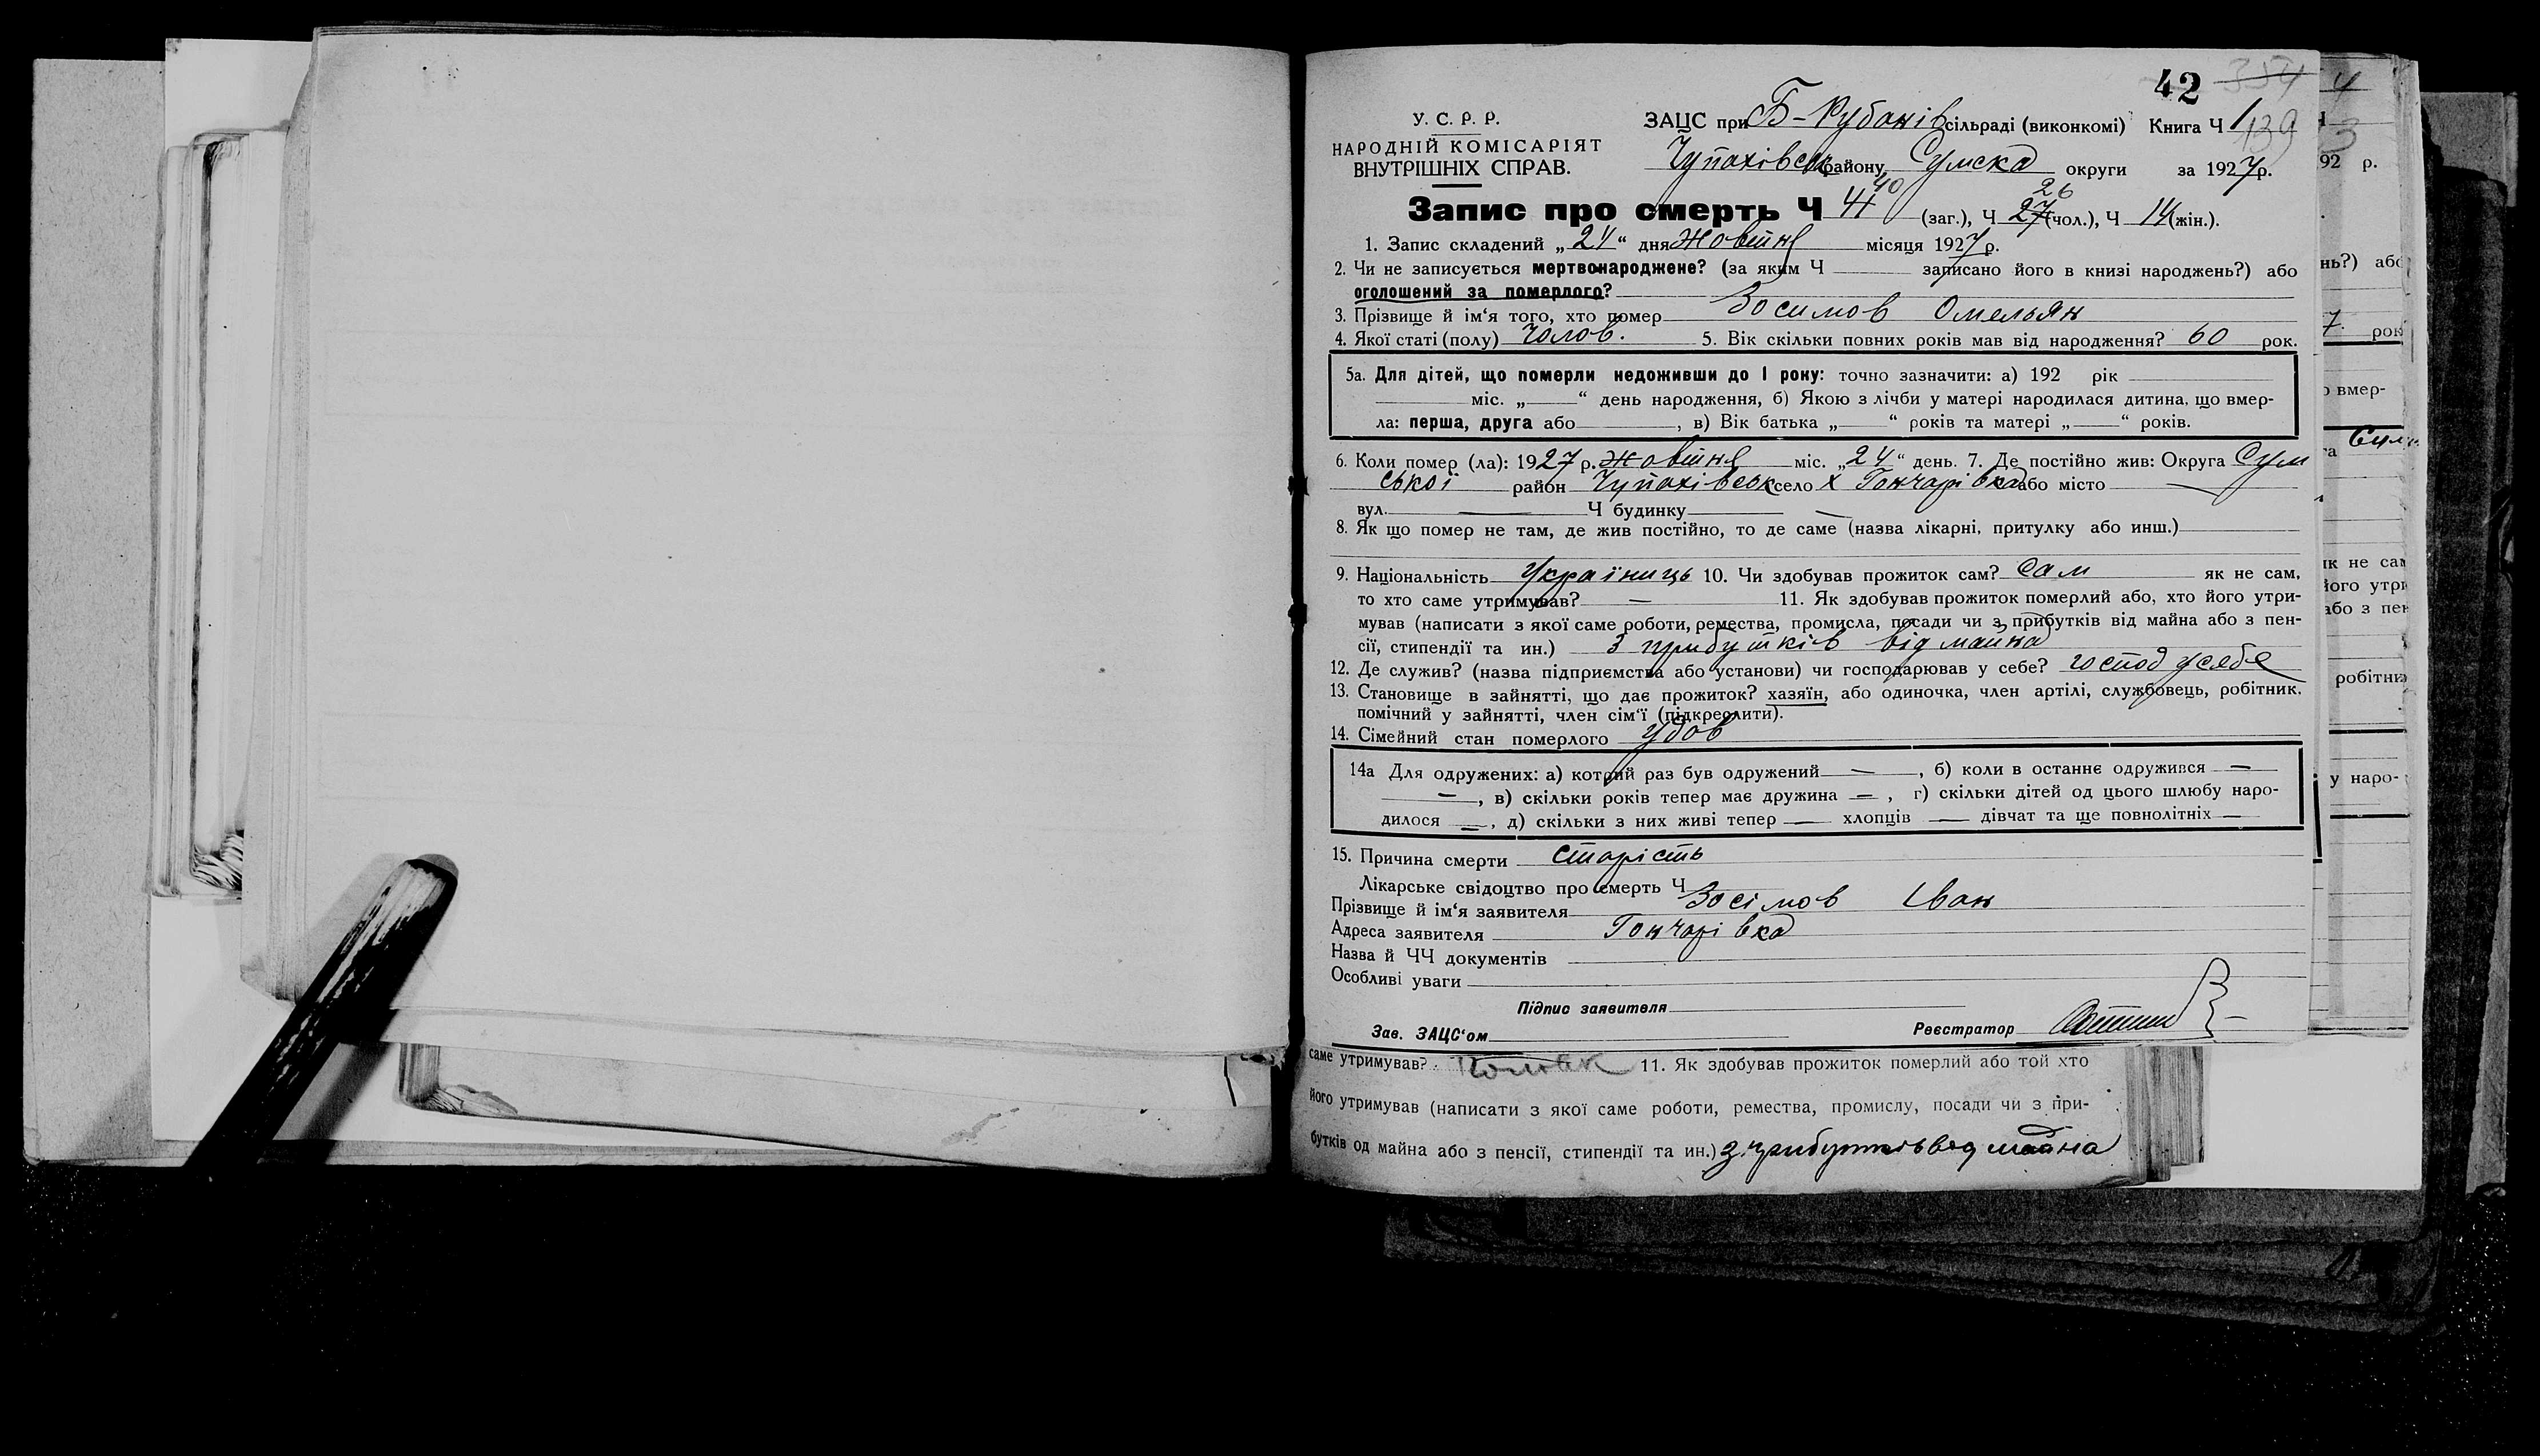 42 354
У. С. Р. Р.
НАРОДНІЙ КОМІСАРІЯТ
ВНУТРІШНІХ СПРАВ.
ЗАЦС при Б-Рубанів сільраді (виконкомі) Книга Ч 1 139
Чупахівськ району Сумска округи за 1927 р.
Запис про смерть Ч 41 40 (заг.), Ч 27 26 (чол.), Ч 14 (жін.).
1. Запис складений „ 24 “ дня Жовтня місяця 1927 р.
2. Чи не записується мертвонароджене? (за яким Ч записано його в книзі народжень?) або
оголошений за померлого?
3. Прізвище й ім‘я того, хто помер Зосимов Омельян
4. Якої статі (полу) Чолов. 5. Вік скільки повних років мав від народження? 60 рок.
5а. Для дітей, що померли недоживши до 1 року: точно зазначити: а) 192 рік
міс. „ “ день народження, б) Якою з лічби у матері народилася дитина, що вмер-
ла: перша, друга або , в) Вік батька „ “ років та матері „ “ років.
6. Коли помер (ла): 1927 р. Жовтня міс. „24“ день. 7. Де постійно жив: Округа Сум
ської район Чупахівськ село х Гончарівка або місто —
вул. — Ч будинку —
8. Як що помер не там, де жив постійно, то де саме (назва лікарні, притулку або инш.)
9. Національність Україниць 10. Чи здобував прожиток сам? Сам як не сам,
то хто саме утримував? — 11. Як здобував прожиток померлий або, хто його утри-
мував (написати з якої саме роботи, ремества, промисла, посади чи з прибутків від майна або з пен-
сії, стипендії та ин.) З прибутків від майна
12. Де служив? (назва підприємства або установи) чи господарював у себе? господ усебе
13. Становище в зайнятті, що дає прожиток? хазяїн, або одиночка, член артілі, службовець, робітник.
помічний у зайнятті, член сім‘ї (підкреслити).
14. Сімейний стан померлого удов
14а Для одружених: а) котрий раз був одружений — , б) коли в останнє одружився —
— , в) скільки років тепер має дружина — , г) скільки дітей од цього шлюбу наро-
дилося — , д) скільки з них живі тепер — хлопців — дівчат та ще повнолітніх —
15. Причина смерти Старість
Лікарське свідоцтво про смерть Ч
Прізвище й ім‘я заявителя Зосімов Іван
Адреса заявителя Гончарівка
Назва й ЧЧ документів
Особливі уваги
Підпис заявителя
Зав. ЗАЦС‘ом Реєстратор
саме утримував? 11. Як здобував прожиток померлий або той хто
його утримував (написати з якої саме роботи, ремества, промислу, посади чи з при-
бутків од майна або з пенсії, стипендії та ин.) з прибутків від майна